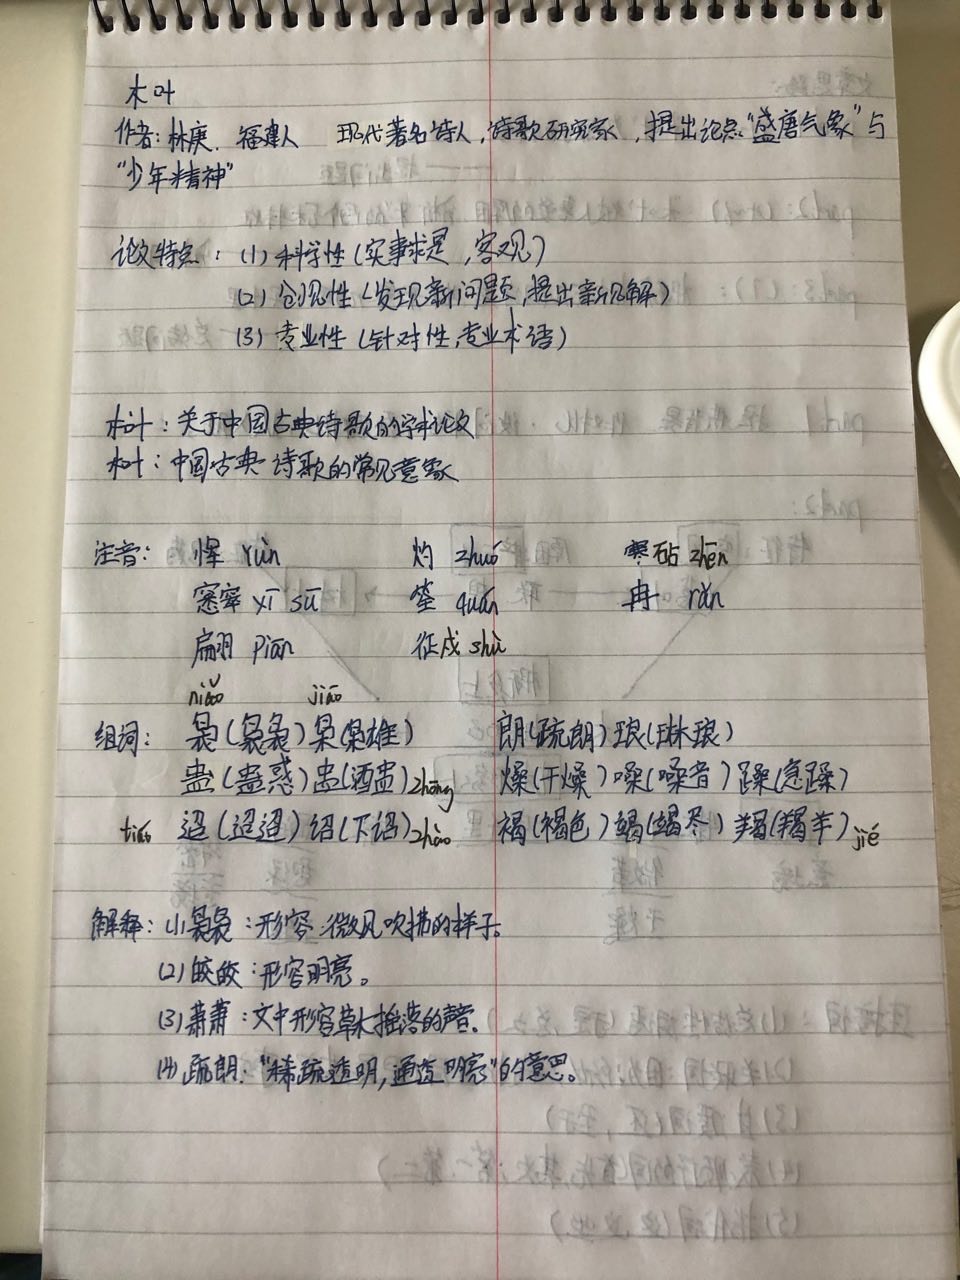 木叶
作者：林庚．福建人 现代著名诗人，诗歌研究家，提出论点“盛唐气象”与
“少年精神”
论文特点：(1) 科学性（实事求是，客观）
(2) 创见性（发现新问题，提出新见解）
(3) 专业性（针对性，专业术语）
木叶：关于中国古典诗歌的学术论文
木叶：中国古典诗歌的常见意象
注音： 恽 yùn 灼 zhuó 寒砧 zhēn
窸窣 xī sū 筌 quán 冉 rǎn
扁翩 piān 征戍 shù
niǎo jiāo
组词： 袅（袅袅）枭（枭雄） 朗（疏朗）琅（琳琅）
蛊（蛊惑）盅（酒盅）zhōng 燥（干燥）噪（噪音）躁（急躁）
tiáo 迢（迢迢）诏（下诏）zhào 褐（褐色）竭（竭尽）羯（羯羊）jié
解释：(1) 袅袅：形容微风吹拂的样子。
(2) 皎皎：形容明亮。
(3) 萧萧：文中形容草木摇落的声音。
(4) 疏朗：“稀疏透明，通透明亮”的意思。